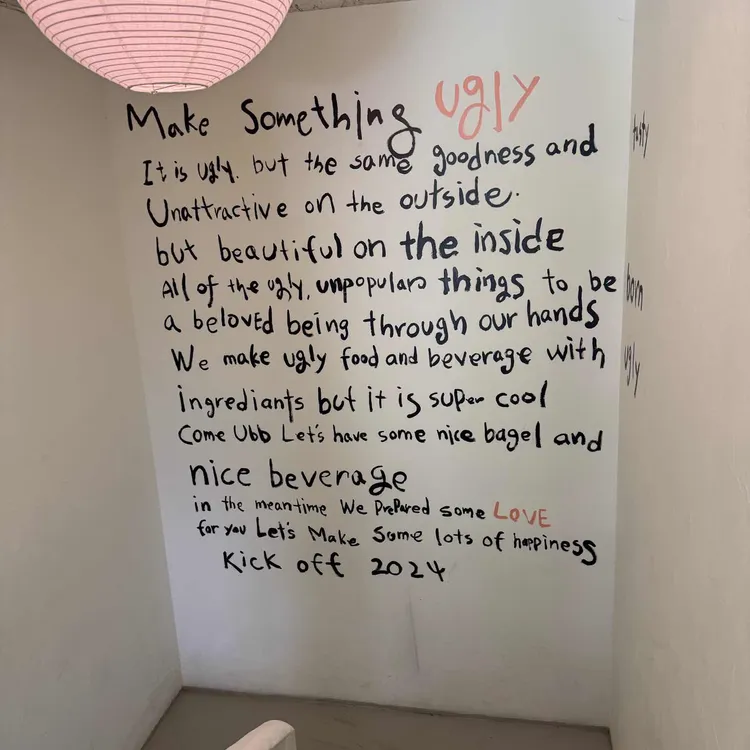 Make Something ugly
It is ugly. but the same goodness and
Unattractive on the outside.
but beautiful on the inside
All of the ugly, unpopular things to be
a beloved being through our hands
We make ugly food and beverage with
ingrediants but it is super cool
Come Ubb Let's have some nice bagel and
nice beverage
in the meantime We PrePared some LOVE
for you Let's Make Some lots of happiness
Kick off 2024
tasty
born
ugly